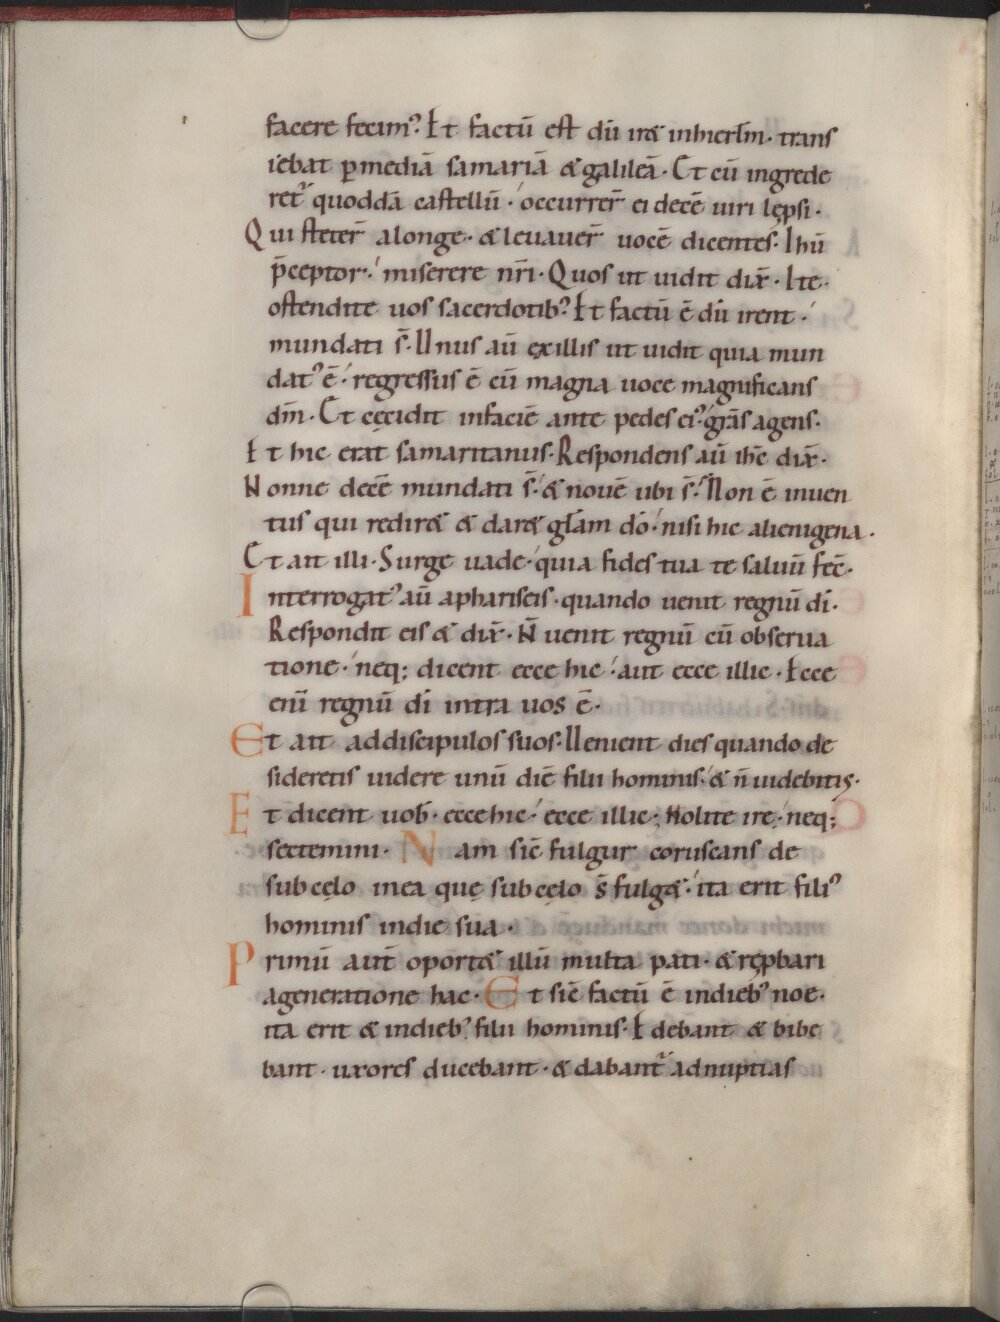 facere fecim᾽. Et factū est dū irꝫ inhierl̄m· trans
iebat ꝑmediā samariā &galileā· Et cū ingrede
ret᷑ quoddā castellū· occurrer̄ ei decē uiri lępsi·
Qui steter̄ alonge· &leuauer̄ uocē dicentes· Ihū
p̄ceptor· miserere nr̄i· Quos ut uidit dix̄· Ite
ostendite uos sacerdotib᾽. Et factū ē dū irent·
mundati s̄· Unus aū exillis ut uidit quia mun
dat᾽ ē· regressus ē cū magna uoce magnificans
dm̄· Et cecidit infaciē ante pedes ei᾽· grās agens·
Et hic erat samaritanus· Respondens aū ihc̄ dix̄·
Nonne decē mundati s̄· & nouē ubi s̄· Non ē inuen
tus qui redir& & dar& glām dō· nisi hic alienigena·
Et ait illi· Surge uade· quia fides tua te saluū fec̄·
Interrogat᾽ aū aphariseis· quando uenit regnū dī·
Respondit eis & dix̄· N̄ uenit regnū cū obserua
tione· neq; dicent ecce hic· aut ecce illic· Ecce
enī regnū dī intra uos ē·
Et ait addiscipulos suos· Uenient dies quando de
sideretis uidere unū diē filii hominis· & n̄ uidebitis·
Et dicent uob̄· ecce hic· ecce illic; Nolite ire· neq;
sectemini· Nam sic̄ fulgur coruscans de
subcęlo inea quę subcęlo s̄ fulg&· ita erit fili᾽
hominis indie sua·
Primū aut̄ oport& illū multa pati· & rep̱bari
ageneratione hac· Et sic̄ factū ē indieb᾽ noe·
ita erit & indieb᾽ filii hominis· Edebant & bibe
bant· uxores ducebant· & dabant᷑ adnuptias